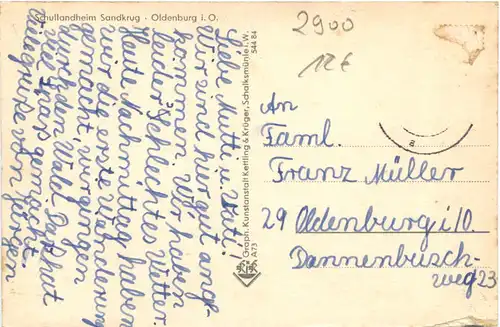 Schullandheim Sandkrug · Oldenburg i. O.
2900
12€
Liebe Mutti u. Vati!
Wir sind hier gut ange-
kommen. Wir haben
leider schlechtes Wetter.
Heute Nachmittag haben
wir die erste Wanderung
gemacht, wir gingen
durch den Wald. Das hat
viel Spas gemacht.
viele grüße von Jürgen
Graph. Kunstanstalt Kettling & Krüger, Schalksmühle i. W.
A73
544 84
An
Faml.
Franz Müller
29 Oldenburg i/O
Dannenbusch-
weg 23